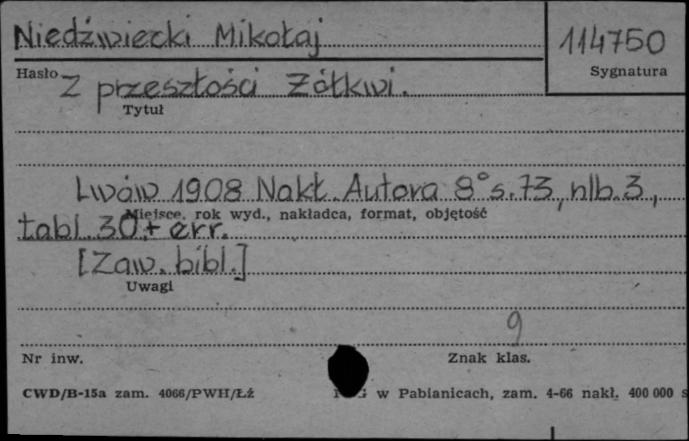 Niedźwiecki Mikołaj
114750
Hasło
Sygnatura
Z przeszłości Żółkwi.
Tytuł
Lwów 1908 Nakł. Autora 8° s. 73, nlb. 3,
Miejsce, rok wyd., nakładca, format, objętość
tabl. 30 + err.
[Zaw. bibl.]
Uwagi
9
Nr inw.
Znak klas.
CWD/B-15a zam. 4066/PWH/Łź
w Pabianicach, zam. 4-66 nakł. 400 000 s